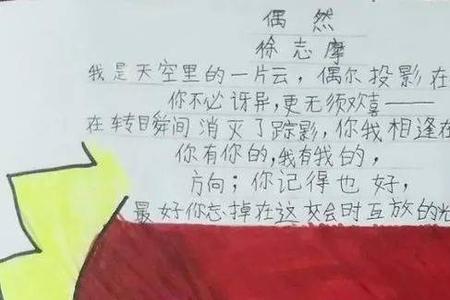 偶然
徐志摩
我是天空里的一片云，偶尔投影在
你不必讶异，更无须欢喜——
在转目瞬间消灭了踪影，你我相逢在
你有你的，我有我的，
方向；你记得也好，
最好你忘掉在这交会时互放的光